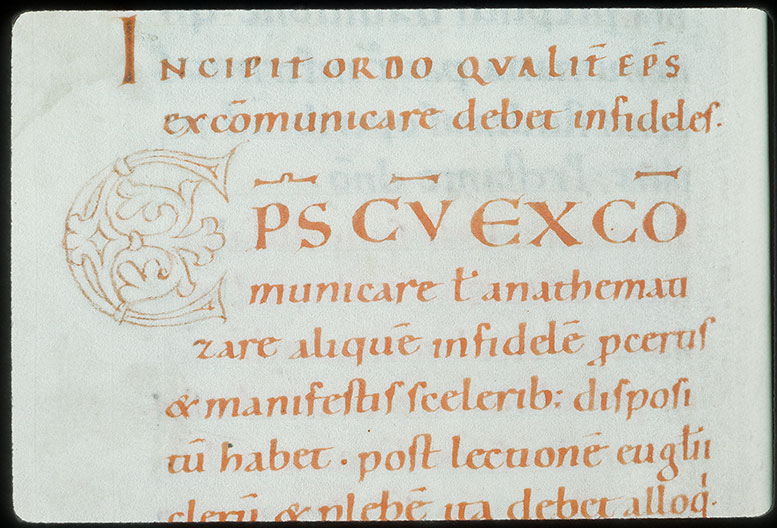 INCIPIT ORDO QVALIT̄ EP̄S
excōmunicare debet infideles.
EP̄S CV̄ EXCŌ
municare ƚ anathemati
zare aliquē infidelē ꝓ certis
& manifestis scelerib; disposi
tū habet. post lectionē eugl̄ii
clerū & plebē ita debet alloq̍.